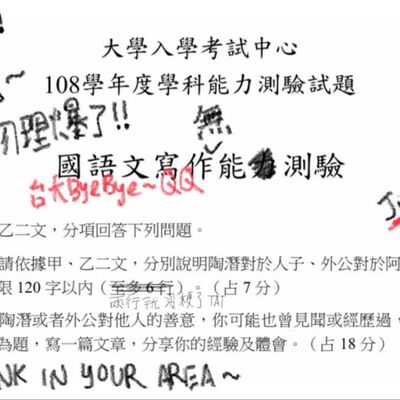 大學入學考試中心
108學年度學科能力測驗試題
物理爆了!!
無
國語文寫作能力測驗
台大ByeBye~QQ
乙二文，分項回答下列問題。
請依據甲、乙二文，分別說明陶潛對於人子、外公對於阿
限 120 字以內（至多 6 行）。（占 7 分）
兩行就沒梗了TAT
陶潛或者外公對他人的善意，你可能也曾見聞或經歷過，
為題，寫一篇文章，分享你的經驗及體會。（占 18 分）
NK IN YOUR AREA~